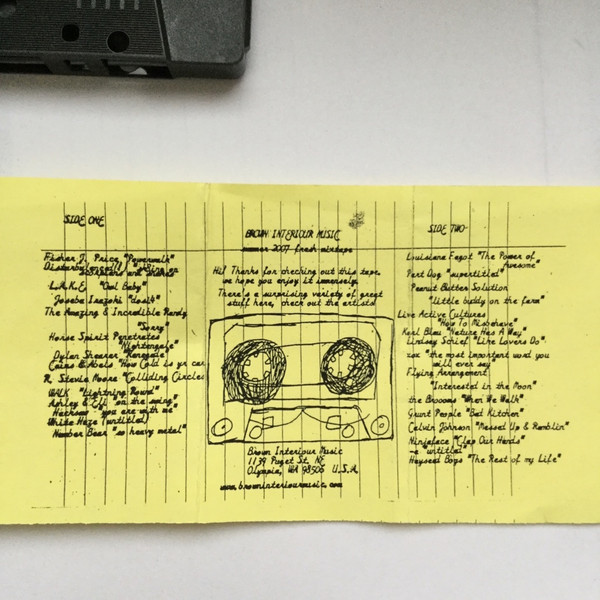 SIDE ONE
Fisher J. Price "Powerwalk"
L.A.K.E. "Owl Baby"
Joseba Irazoki "dosti"
The Amazing & Incredible Randy
"Sorry"
Horse Spirit Penetrates
"Nightengale"
Dylan Shearer, "Renegade"
Cains & Abels "How Cold is yr car
R. Stevie Moore "Colliding Circles
WALK "Lightning Round"
Ashley & Eli "on the swing"
Hackson "you are with me"
White Haze (untitled)
Number Bear "so heavy metal"
BROWN INTERIOUR MUSIC
summer 2007 fresh mixtape
Hi! Thanks for checking out this tape.
we hope you enjoy it immensely.
There's a surprising variety of great
stuff here, check out the artists!
Brown Interiour Music
1139 Puget St. NE
Olympia, WA 98506 U.S.A.
www.browninteriourmusic.com
SIDE TWO
"The Power of
Awesome"
Pert Dog "supertitled"
Peanut Butter Solution
"little buddy on the farm"
Live Active Cultures
"How To Misbehave"
Karl Blau "Nature Has A Way"
Lindsay Schief "Like Lovers Do"
xox "the most important word you
will ever say"
Flying Arrangement
"Interested in the Moon"
the Brooooms "When We Walk"
Grunt People "Bad Kitchen"
Calvin Johnson "Messed Up & Ramblin"
Ninjaface "Clap Our Hands"
"untitled"
Hayseed Boys "The Rest of my Life"